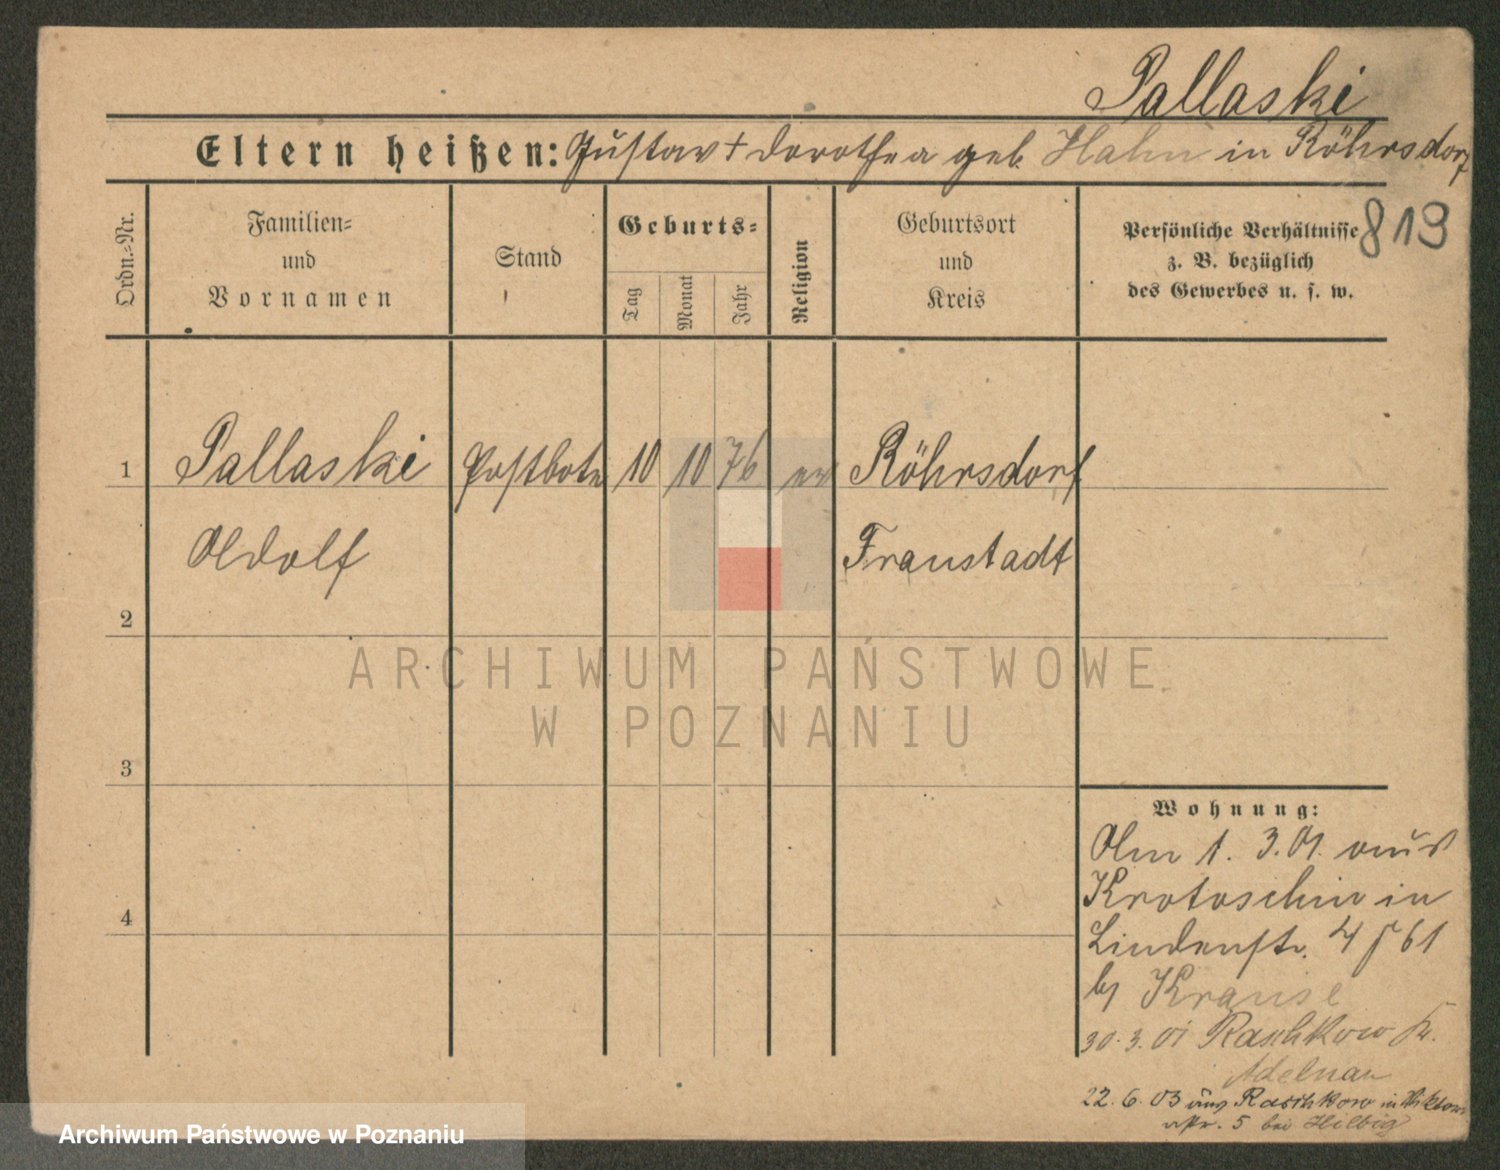 Pallaski
Eltern heißen: Gustav † Dorothea geb. Hahn in Röhrsdorf
Ordn.=Nr.
Familien=
und
Vornamen
Stand
Geburts=
Tag
Monat
Jahr
Religion
Geburtsort
und
Kreis
Persönliche Verhältnisse
z. B. bezüglich
des Gewerbes u. s. w.
813
1 Pallaski Postbote 10 10 76 ev Röhrsdorf
Adolf Fraustadt
2
ARCHIWUM PAŃSTWOWE
W POZNANIU
3
4
Wohnung:
Am 1. 3. 01. aus
Krotoschin in
Lindenstr. 4 J 61
bj Krause
30. 3. 01 Raschkow Kr.
Adelnau
22. 6. 03 aus Raschkow in Viktoria
str. 5 bei Hilbig
Archiwum Państwowe w Poznaniu